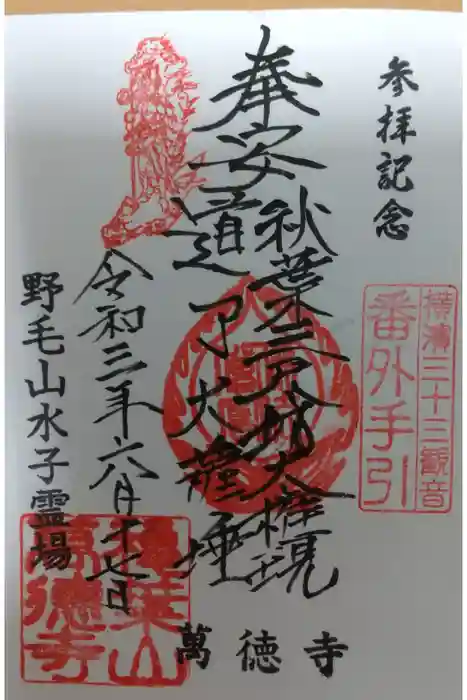 参拝記念
横濱三十三観音
番外手引
奉安
秋葉三尺坊大権現
道了大薩埵
令和三年六月十七日
野毛山水子霊場
萬徳寺
萬德寺